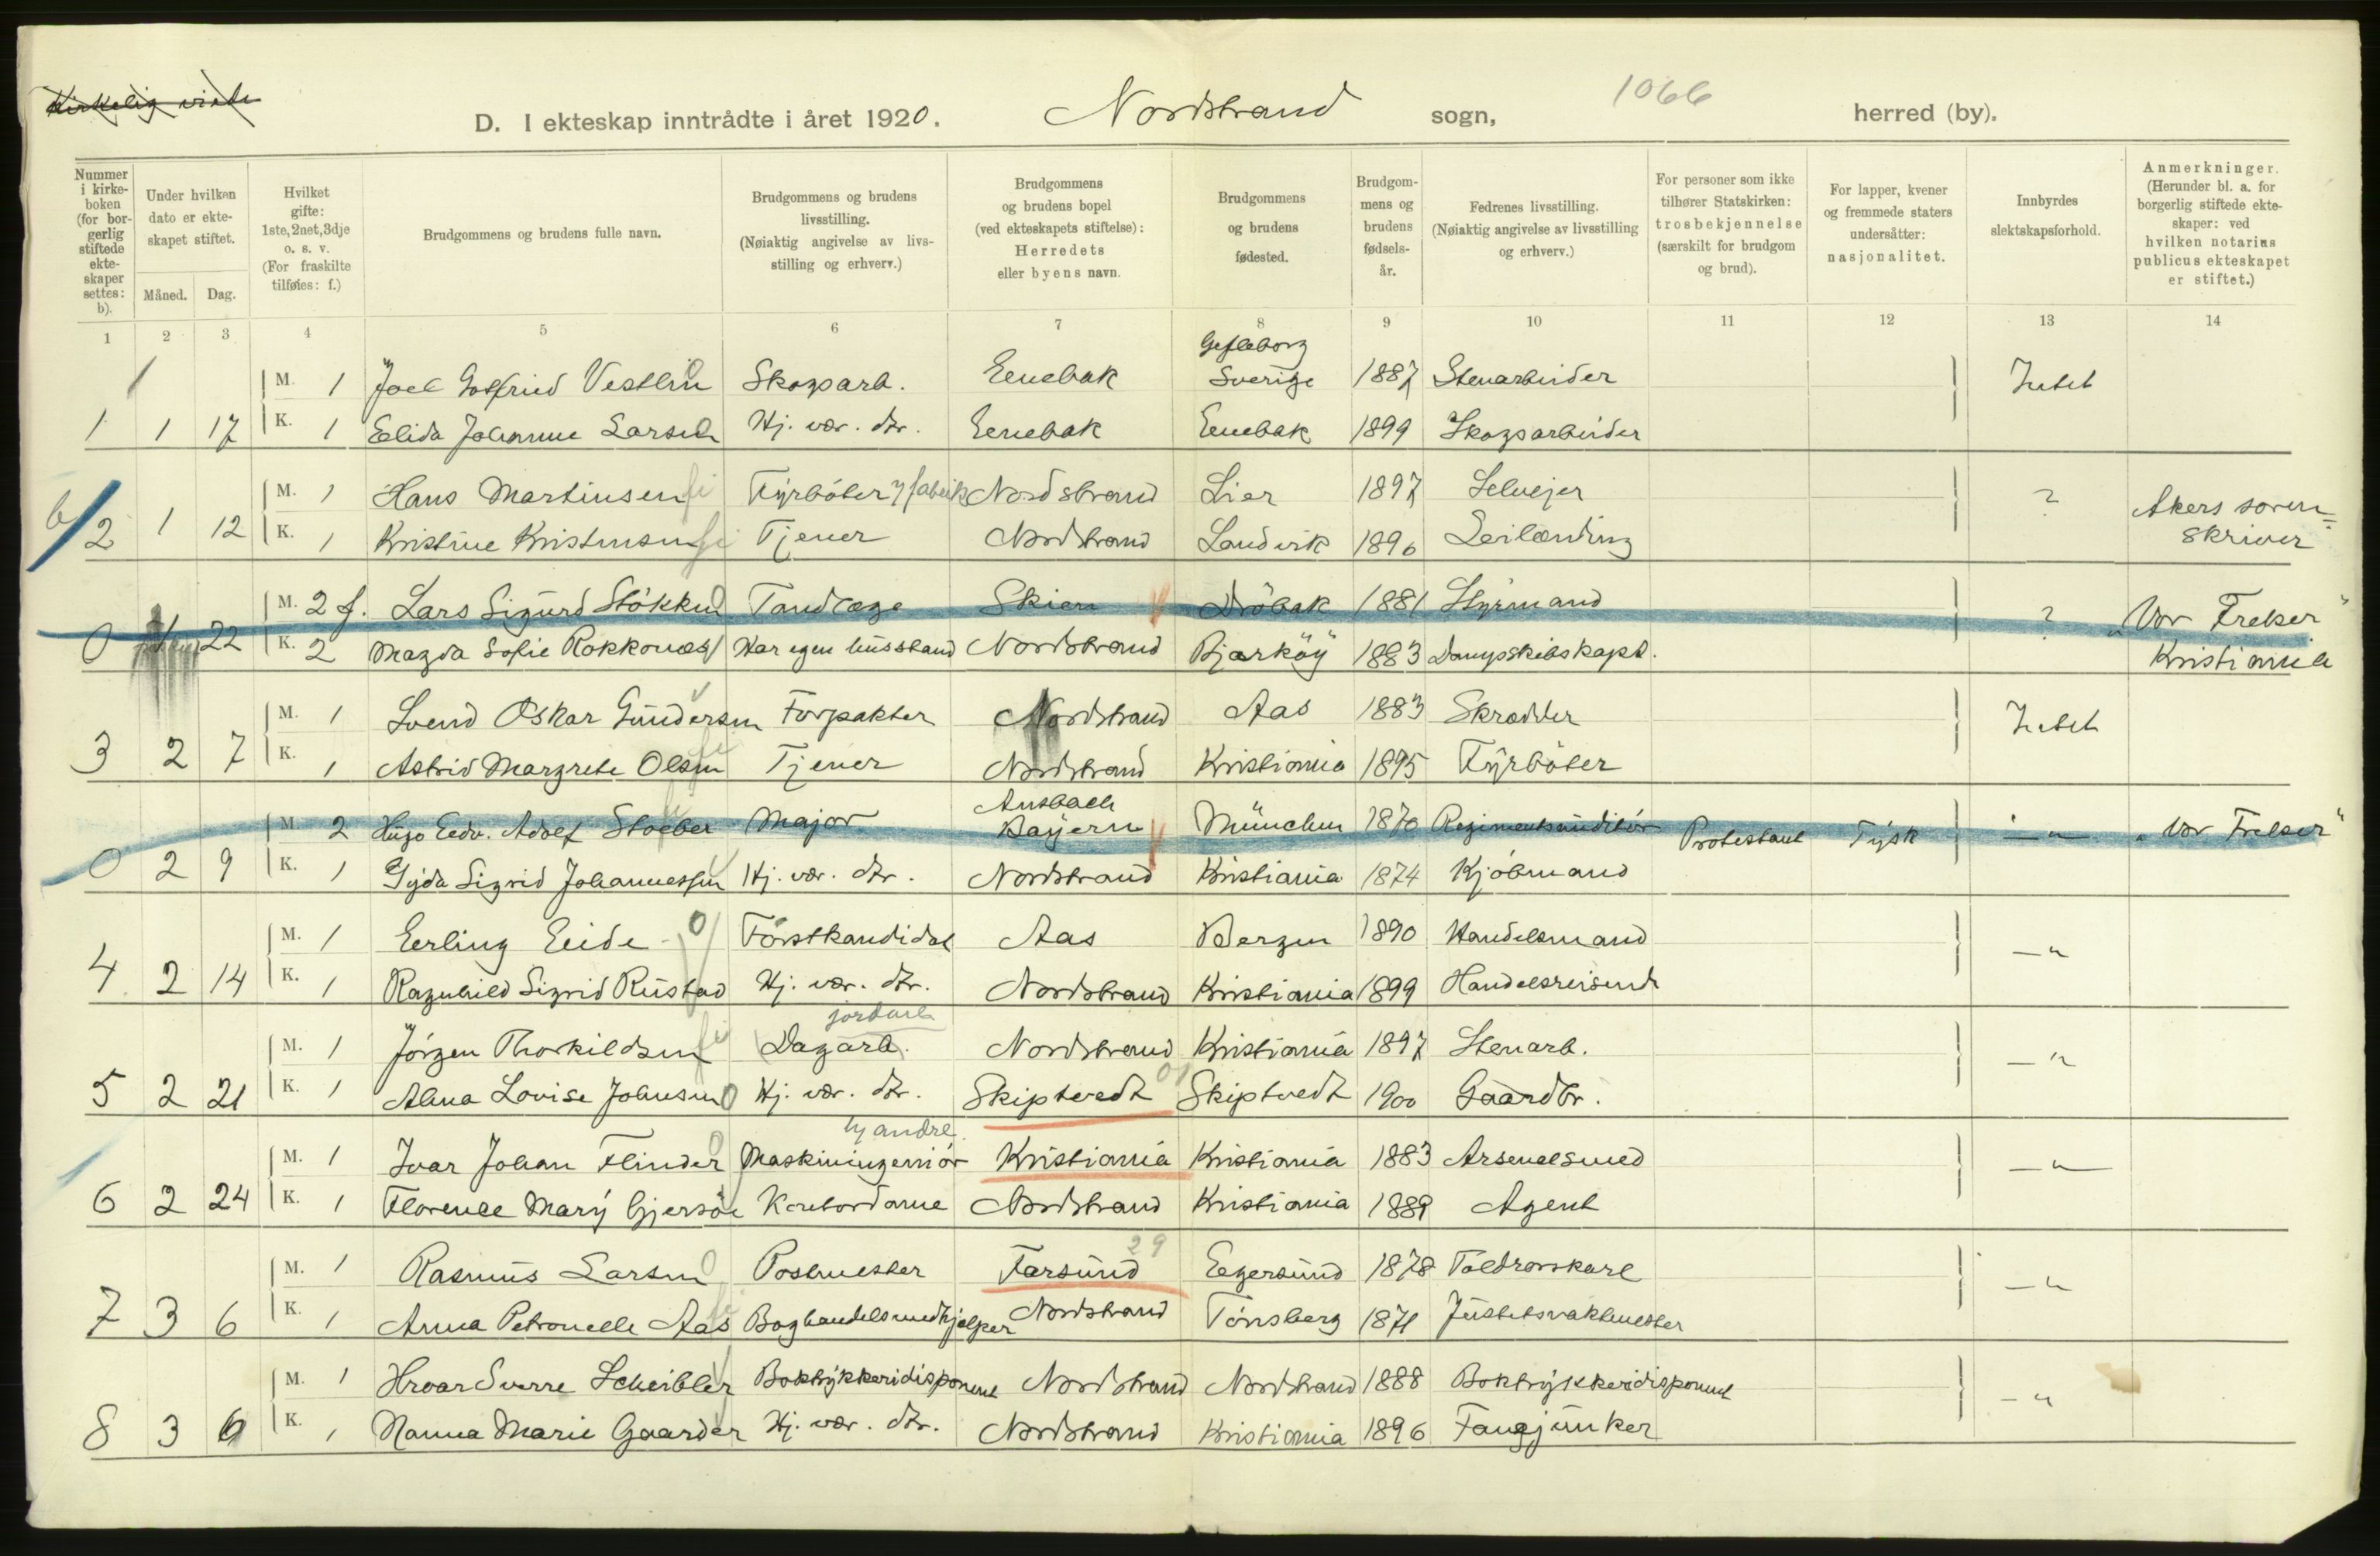 Kirkelig viede
D. I ekteskap inntrådte i året 1920. Nordstrand sogn, 1066 herred (by).
Nummer i kirkeboken (for borgerlig stiftede ekteskaper settes: b).
Under hvilken dato er ekteskapet stiftet.
Måned. Dag.
Hvilket gifte: 1ste, 2net, 3dje o. s. v. (For fraskilte tilføies: f.)
Brudgommens og brudens fulle navn.
Brudgommens og brudens livsstilling. (Nøiaktig angivelse av livsstilling og erhverv.)
Brudgommens og brudens bopel (ved ekteskapets stiftelse): Herredets eller byens navn.
Brudgommens og brudens fødested.
Brudgommens og brudens fødselsår.
Fedrenes livsstilling. (Nøiaktig angivelse av livsstilling og erhverv.)
For personer som ikke tilhører Statskirken: trosbekjennelse (særskilt for brudgom og brud).
For lapper, kvener og fremmede staters undersåtter: nasjonalitet.
Innbyrdes slektskapsforhold.
Anmerkninger. (Herunder bl. a. for borgerlig stiftede ekteskaper: ved hvilken notarius publicus ekteskapet er stiftet.)
1 2 3 4 5 6 7 8 9 10 11 12 13 14
Gefleborg
M. 1 Joel Gotfried Vestlin Skogsarb. Eenebak Sverige 1887 Stenarbeider Intet
1 1 17 K. 1 Elida Johanne Larsen Hj. vær. dtr. Eenebak Eenebak 1899 Skogsarbeider
b/ M. 1 Hans Martinsen Fyrbøter fabrik Nordstrand Lier 1897 Selvejer ? Akers soren-
2 1 12 K. 1 Kristine Kristensen Tjener Nordstrand Landvik 1896 Leilænding skriver
M. 2 f. Lars Sigurd Stökken Tandlæge Skien Dröbak 1881 Styrmand ? "Vor Frelser"
0 22 K. 2 Magda Sofie Rokkones Har egen husstand Nordstrand Bjarköy 1883 Dampskibskapt. Kristiania
M. 1 Svend Oskar Gundersen Forpakter Nordstrand Aas 1883 Skrædder Intet
3 2 7 K. 1 Astrid Margrete Olsen Tjener Nordstrand Kristiania 1895 Fyrböter
Ansbach
M. 2 Hugo Edv. Adolf Stoeber Major Bayern München 1870 Regimentsauditör Protestant Tysk — " — "Vor Frelser"
0 2 9 K. 1 Gyda Sigrid Johannessen Hj. vær. dtr. Nordstrand Kristiania 1874 Kjöbmand
M. 1 Erling Eide Forstkandidat Aas Bergen 1890 Handelsmand — "
4 2 14 K. 1 Ragnhild Sigrid Rustad Hj. vær. dtr. Nordstrand Kristiania 1899 Handelsreisende
jordarb
M. 1 Jörgen Thorkildsen Dagarb. Nordstrand Kristiania 1897 Stenarb. — "
5 2 21 K. 1 Alma Lovise Johnsen Hj. vær. dtr. Skiptvedt Skiptvedt 1900 Gaardbr.
hj andre.
M. 1 Ivar Johan Flinder Maskiningeniör Kristiania Kristiania 1883 Arsenalsmed — " —
6 2 24 K. 1 Florence Mary Gjersöe Kontordame Nordstrand Kristiania 1889 Agent
29
M. 1 Rasmus Larsen Postmester Farsund Egersund 1878 Toldrorskarl — "
7 3 6 K. 1 Anna Petronelle Aas Boghandelsmedhjælper Nordstrand Tönsberg 1871 Justitsvaktmester
M. 1 Hroar Sverre Scheibler Boktrykkeridisponent Nordstrand Nordstrand 1888 Boktrykkeridisponent — "
8 3 6 K. 1 Nanna Marie Gaarder Hj. vær. dtr. Nordstrand Kristiania 1896 Fangjunker